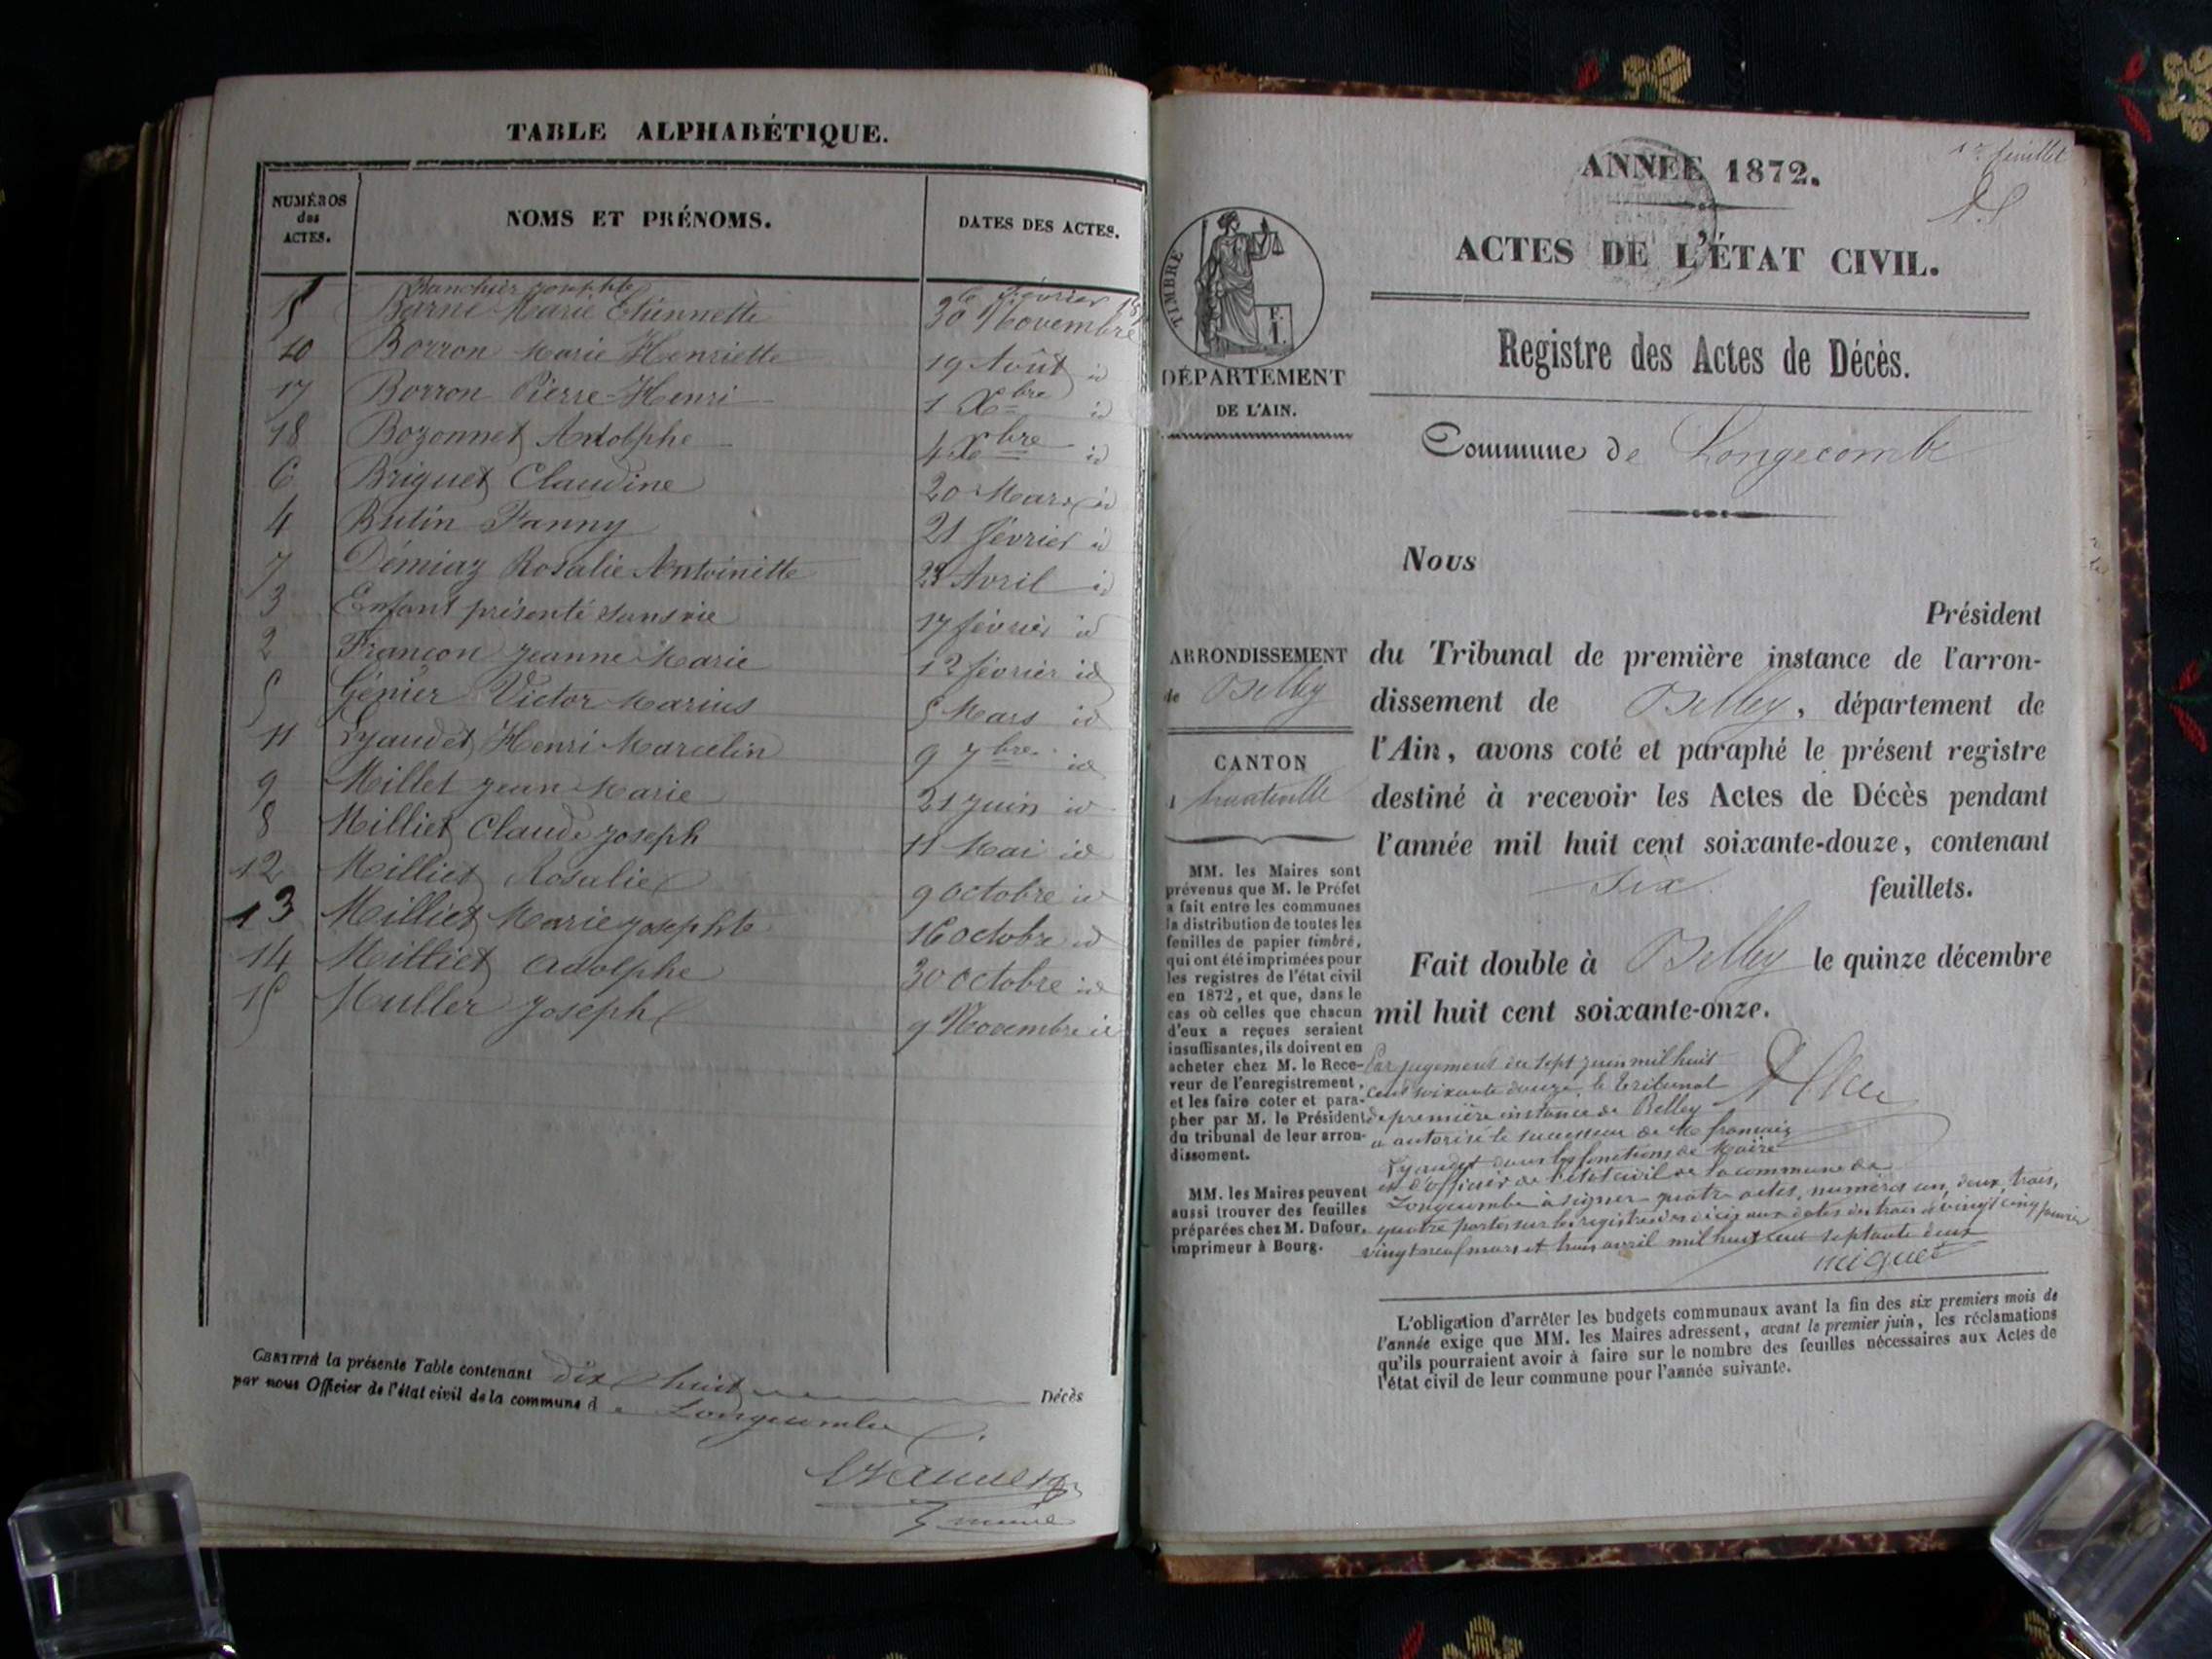 TABLE ALPHABÉTIQUE.
NUMÉROS
des
ACTES.
NOMS ET PRÉNOMS.
DATES DES ACTES.
Banchier Josephte
février
Marie Étiennette 30 Novembre
10 Borron Marie Henriette 19 Août id
17 Borron Pierre-Henri 1 Xbre id
18 Bozonnet Adolphe 4 Xbre id
6 Briguet Claudine 20 Mars id
4 Butin Fanny 21 février id
7 Démiaz Rosalie Antoinette 23 Avril id
3 Enfant présenté sans vie 17 février id
2 Françon Jeanne Marie 12 février id
5 Génier Victor Marius 5 Mars id
11 Lyaudet Henri Marcelin 9 7bre id
9 Millet Jean Marie 21 Juin id
8 Milliet Claude Joseph 11 Mai id
12 Milliet Rosalie 9 Octobre id
13 Milliet Marie Josephte 16 Octobre id
14 Milliet Adolphe 30 Octobre id
15 Muller Joseph 9 Novembre id
CERTIFIÉ la présente Table contenant dix huit Décès
par nous Officier de l'état civil de la commune de Longecombe.
1er feuillet
ANNÉE 1872.
ACTES DE L'ÉTAT CIVIL.
TIMBRE
DÉPARTEMENT
DE L'AIN.
Registre des Actes de Décès.
Commune de Longecombe
Nous
Président
ARRONDISSEMENT
de Belley
CANTON
d'hauteville
du Tribunal de première instance de l'arron-
dissement de Belley, département de
l'Ain, avons coté et paraphé le présent registre
destiné à recevoir les Actes de Décès pendant
l'année mil huit cent soixante-douze, contenant
six feuillets.
Fait double à Belley le quinze décembre
mil huit cent soixante-onze.
MM. les Maires sont
prévenus que M. le Préfet
a fait entre les communes
la distribution de toutes les
feuilles de papier timbré,
qui ont été imprimées pour
les registres de l'état civil
en 1872, et que, dans le
cas où celles que chacun
d'eux a reçues seraient
insuffisantes, ils doivent en
acheter chez M. le Rece-
veur de l'enregistrement,
et les faire coter et para-
pher par M. le Président
du tribunal de leur arron-
dissement.
MM. les Maires peuvent
aussi trouver des feuilles
préparées chez M. Dufour,
imprimeur à Bourg.
Par jugement du sept juin mil huit
cent soixante douze, le tribunal
de première instance de Belley
a autorisé le successeur de M françois
Lyaudet dans les fonctions de Maire
et d'officier de l'état civil de la commune de
Longecombe à signer quatre actes, numéros un, deux, trois,
quatre portés sur les registres des décès aux dates des trois et vingt cinq janvier
vingt neuf mars et trois avril mil huit cent septante deux
miguet
L'obligation d'arrêter les budgets communaux avant la fin des six premiers mois de
l'année exige que MM. les Maires adressent, avant le premier juin, les réclamations
qu'ils pourraient avoir à faire sur le nombre des feuilles nécessaires aux Actes de
l'état civil de leur commune pour l'année suivante.